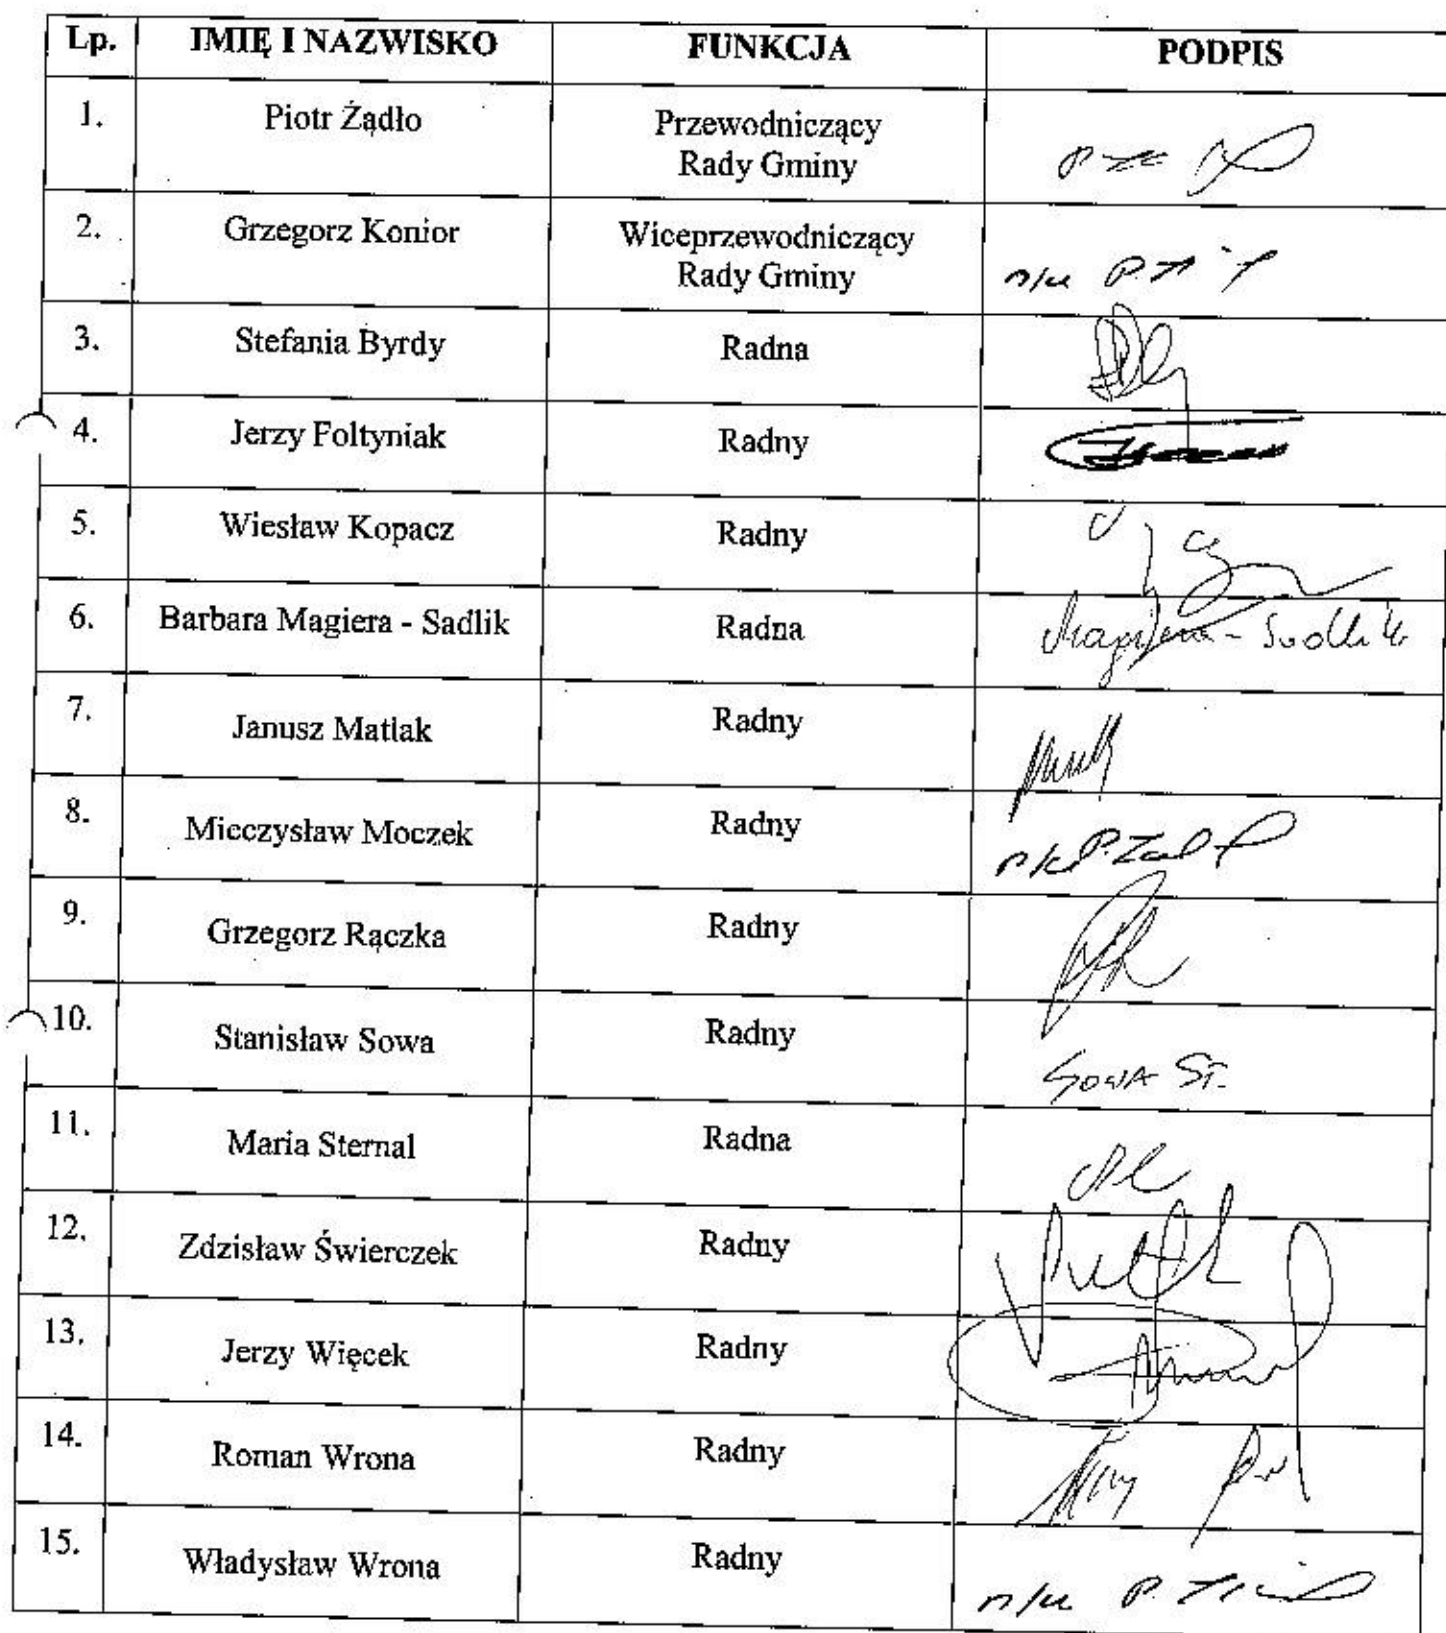 Lp. IMIĘ I NAZWISKO FUNKCJA PODPIS
1. Piotr Żądło Przewodniczący
Rady Gminy
2. Grzegorz Konior Wiceprzewodniczący
Rady Gminy
n/u P.
3. Stefania Byrdy Radna
4. Jerzy Foltyniak Radny
5. Wiesław Kopacz Radny
6. Barbara Magiera - Sadlik Radna Magiera - Sadlik
7. Janusz Matlak Radny
8. Mieczysław Moczek Radny
9. Grzegorz Rączka Radny
10. Stanisław Sowa Radny
SOWA ST.
11. Maria Sternal Radna
12. Zdzisław Świerczek Radny
13. Jerzy Więcek Radny
14. Roman Wrona Radny
15. Władysław Wrona Radny
n/u P.